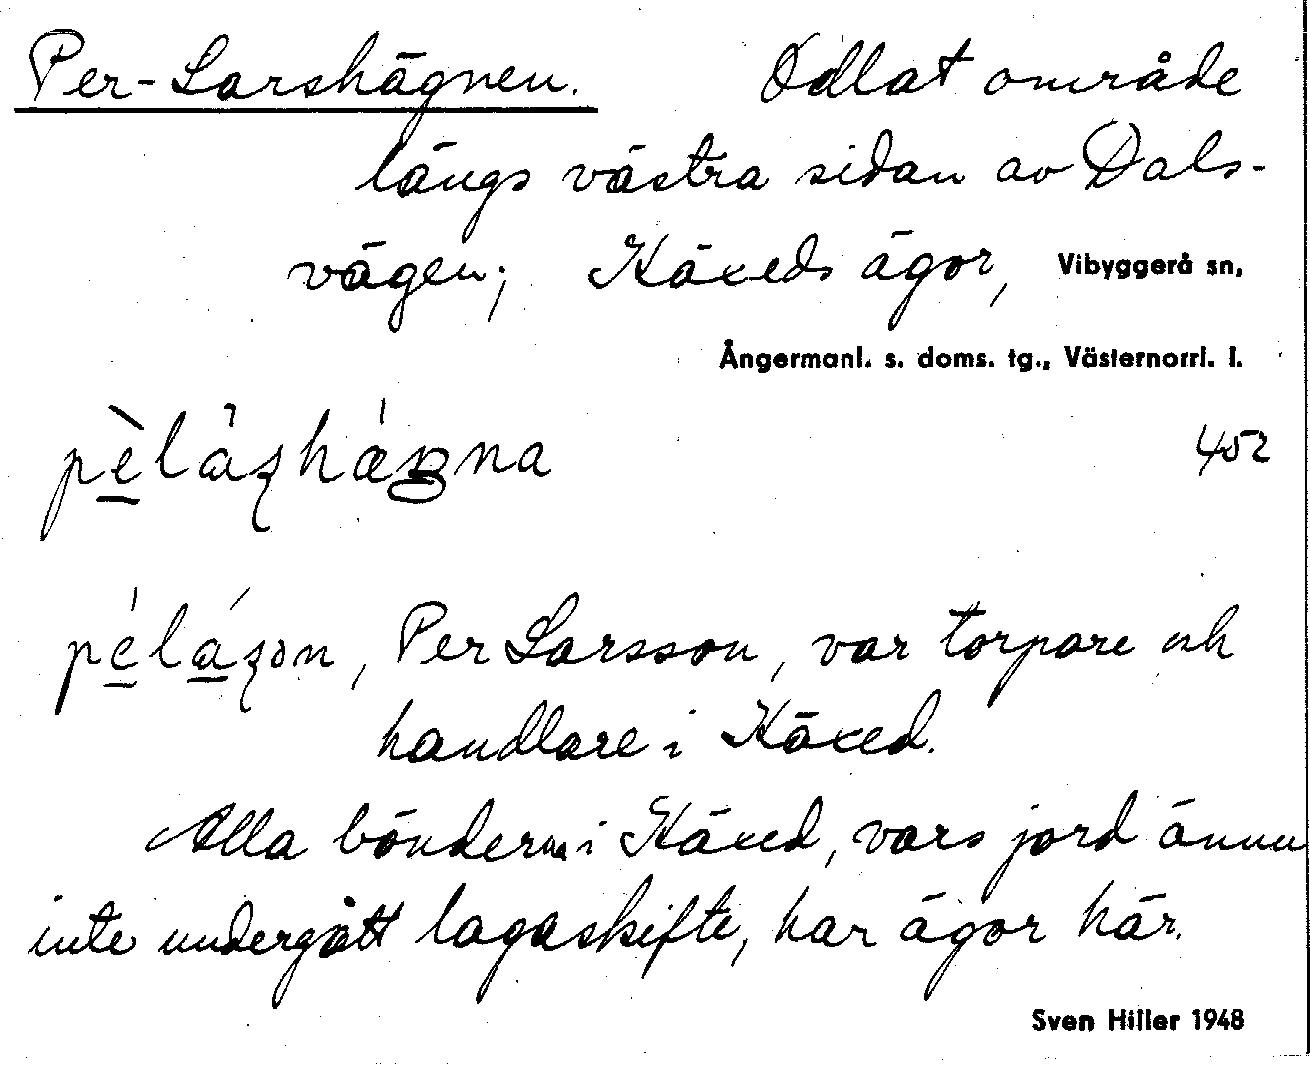 Per-Larshägnen. Odlat område
längs västra sidan av Dals-
vägen; Käxeds ägor, Vibyggerå sn,
Ångermanl. s. doms. tg., Västernorrl. l.
452
Per Larsson, var torpare och
handlare i Käxed.
Alla bönderna i Käxed, vars jord ännu
inte undergått lagaskifte, har ägor här.
Sven Hiller 1948